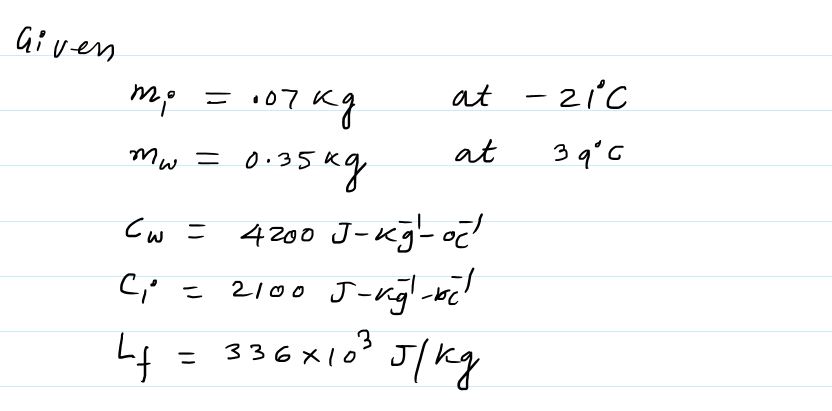 Given
mᵢ = .07 Kg at - 21°C
m_w = 0.35 Kg at 39°C
C_w = 4200 J-Kg⁻¹-°C⁻¹
Cᵢ = 2100 J-Kg⁻¹-°C⁻¹
L_f = 336 × 10³ J/Kg